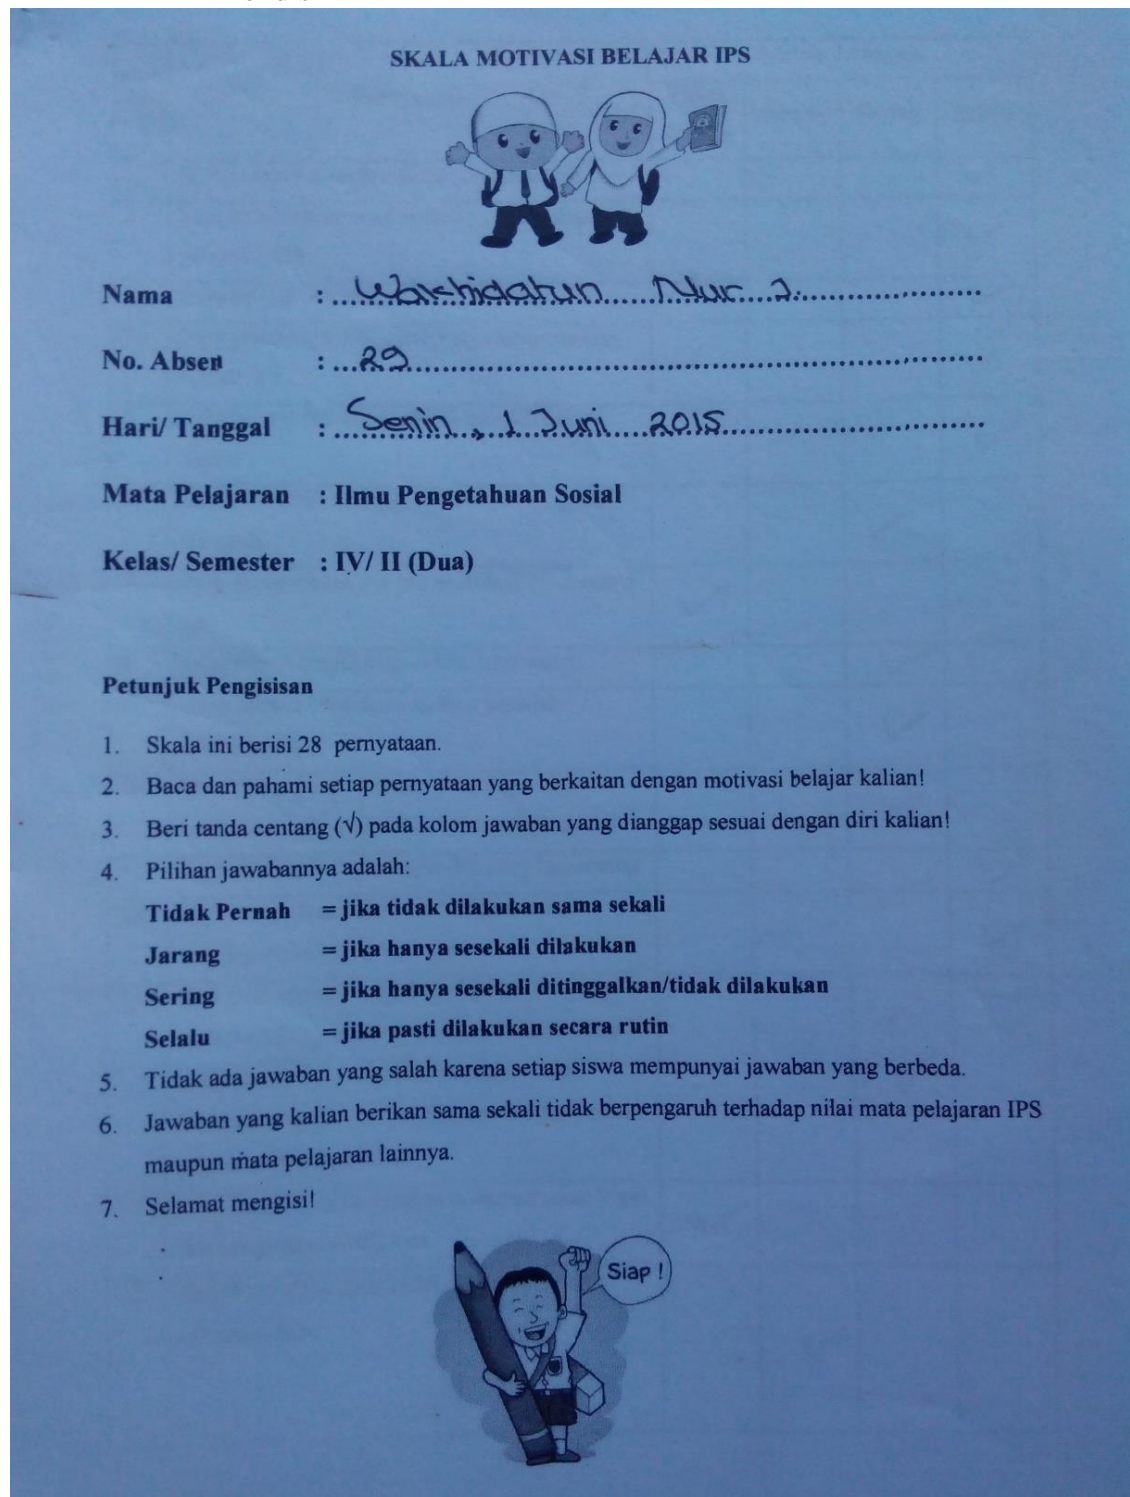 SKALA MOTIVASI BELAJAR IPS
Nama : Washidatun Nur
No. Absen : 29
Hari/ Tanggal : Senin, 1 Juni 2015
Mata Pelajaran : Ilmu Pengetahuan Sosial
Kelas/ Semester : IV/ II (Dua)
Petunjuk Pengisisan
1. Skala ini berisi 28 pernyataan.
2. Baca dan pahami setiap pernyataan yang berkaitan dengan motivasi belajar kalian!
3. Beri tanda centang (√) pada kolom jawaban yang dianggap sesuai dengan diri kalian!
4. Pilihan jawabannya adalah:
Tidak Pernah = jika tidak dilakukan sama sekali
Jarang = jika hanya sesekali dilakukan
Sering = jika hanya sesekali ditinggalkan/tidak dilakukan
Selalu = jika pasti dilakukan secara rutin
5. Tidak ada jawaban yang salah karena setiap siswa mempunyai jawaban yang berbeda.
6. Jawaban yang kalian berikan sama sekali tidak berpengaruh terhadap nilai mata pelajaran IPS
maupun mata pelajaran lainnya.
7. Selamat mengisi!
Siap !